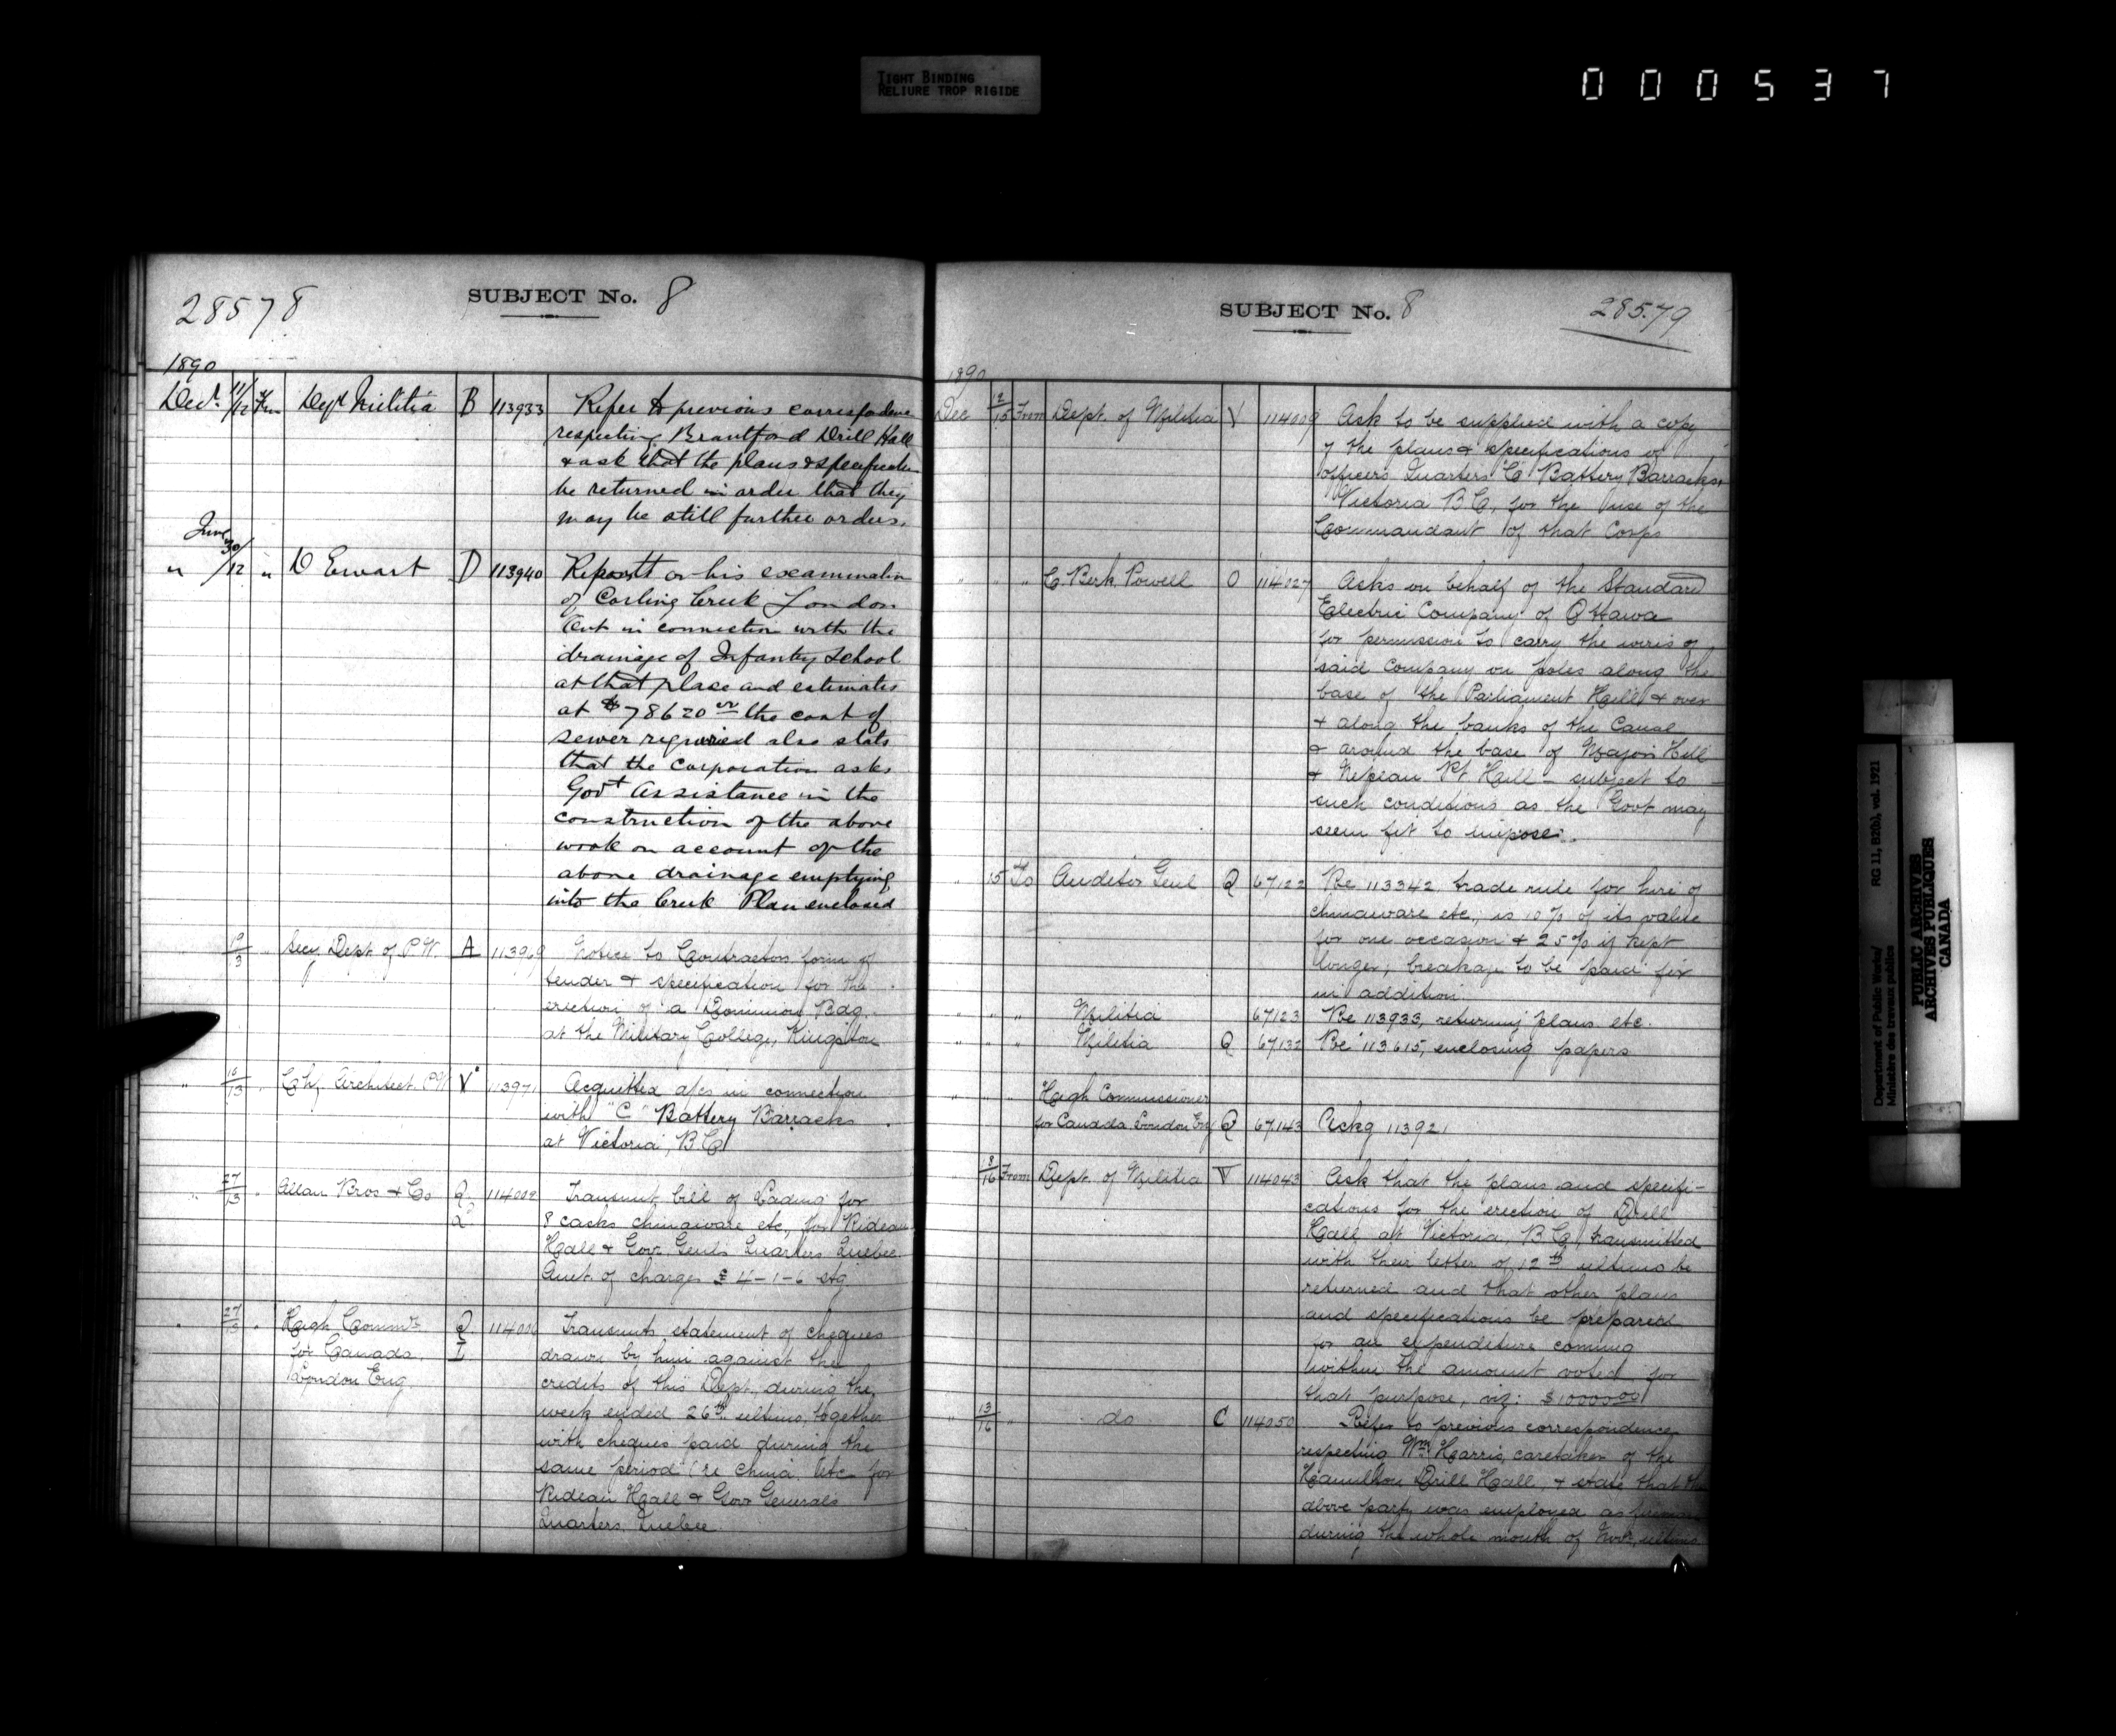 TIGHT BINDING
RELIURE TROP RIGIDE
000537
28578
SUBJECT No. 8
1890
Decr. 11/12 Frm Dept Militia B 113933 Refer to previous correspondence
respecting Brantford Drill Hall
& ask that the plans & specification
be returned in order that they
may be still further orders.
June
" 30/12 " D Ewart D 113940 Report on his examination
of Carling Creek London
Ont in connection with the
drainage of Infantry School
at that place and estimates
at $78620 the cost of
sewer required also stats
that the Corporation asks
Govt Assistance in the
construction of the above
work on account of the
above drainage emptying
into the Creek Plan enclosed
" Secy, Dept. of P.W. A 113969 Notice to Contractors form of
tender & specification for the
erection of a Dominion Bdg.
at the Military College, Kingston
" 10/13 " Chf Architect P.W. V 113971 Acquitted a/cs in connection
with "C" Battery Barracks
at Victoria, B C
" 27/13 " Allan Bros & Co Q 114002 Transmit bill of Lading for
8 casks chinaware etc, for Rideau
Hall & Gov. Genl's Quarters Quebec.
Amt. of charges £ 4-1-6 stg
" 27/13 " High Commr. Q 114006 Transmits statement of cheques
for Canada, I drawn by him against the
London Eng. credits of this Dept, during the
week ended 26th ultimo, together
with cheques paid during the
same period (re china etc for
Rideau Hall & Gov Generals
Quarters, Quebec.
SUBJECT No. 8
28579
1890
Dec 12/15 From Dept. of Militia V 114009 Ask to be supplied with a copy
of the plans & specifications of
officers Quarters "C" Battery Barracks,
Victoria B C, for the use of the
Commandant of that Corps
" " " C. Berk Powell O 114027 Asks on behalf of the Standard
Electric Company of Ottawa
for permission to carry the wires of
said Company on poles along the
base of the Parliament Hill & over
& along the banks of the Canal
& around the base of Major's Hill
& Nepean Pt Hill - subject to
such conditions as the Govt may
seem fit to impose.
" 15 To Auditor Genl Q 67122 Re 113342 trade rule for hire of
chinaware etc, is 10% of its value
for one occasion & 25% if kept
longer; breakage to be paid for
in addition.
" " " Militia 67123 Re 113933, returning plans etc.
" " " Militia Q 67132 Re 113615, enclosing papers
" " " High Commissioner
for Canada London Eng Q 67143 Ackg 113921
" 13/16 From Dept. of Militia V 114043 Ask that the plans and specifi-
cations for the erection of Drill
Hall at Victoria, B C, transmitted
with their letter of 12th ultimo be
returned and that other plans
and specifications be prepared
for an expenditure coming
within the amount voted for
that purpose, viz: $10000.00
" 13/16 " do C 114050 Refer to previous correspondence
respecting Wm. Harris, caretaker of the
Hamilton Drill Hall, & state that the
above party was employed as fireman
during the whole month of Novr, ultimo
Department of Public Works/
Ministère des travaux publics
RG 11, B2(b), vol. 1921
PUBLIC ARCHIVES
ARCHIVES PUBLIQUES
CANADA